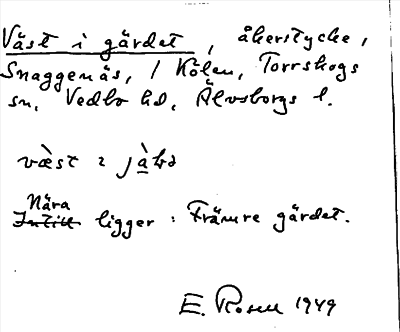 Väst i gärdet, åkerstycke,
Snaggenäs, / Kölen, Torrskogs
sn, Vedbo hd, Älvsborgs l.
Nära
Intill ligger: Främre gärdet.
E. Rosell 1949